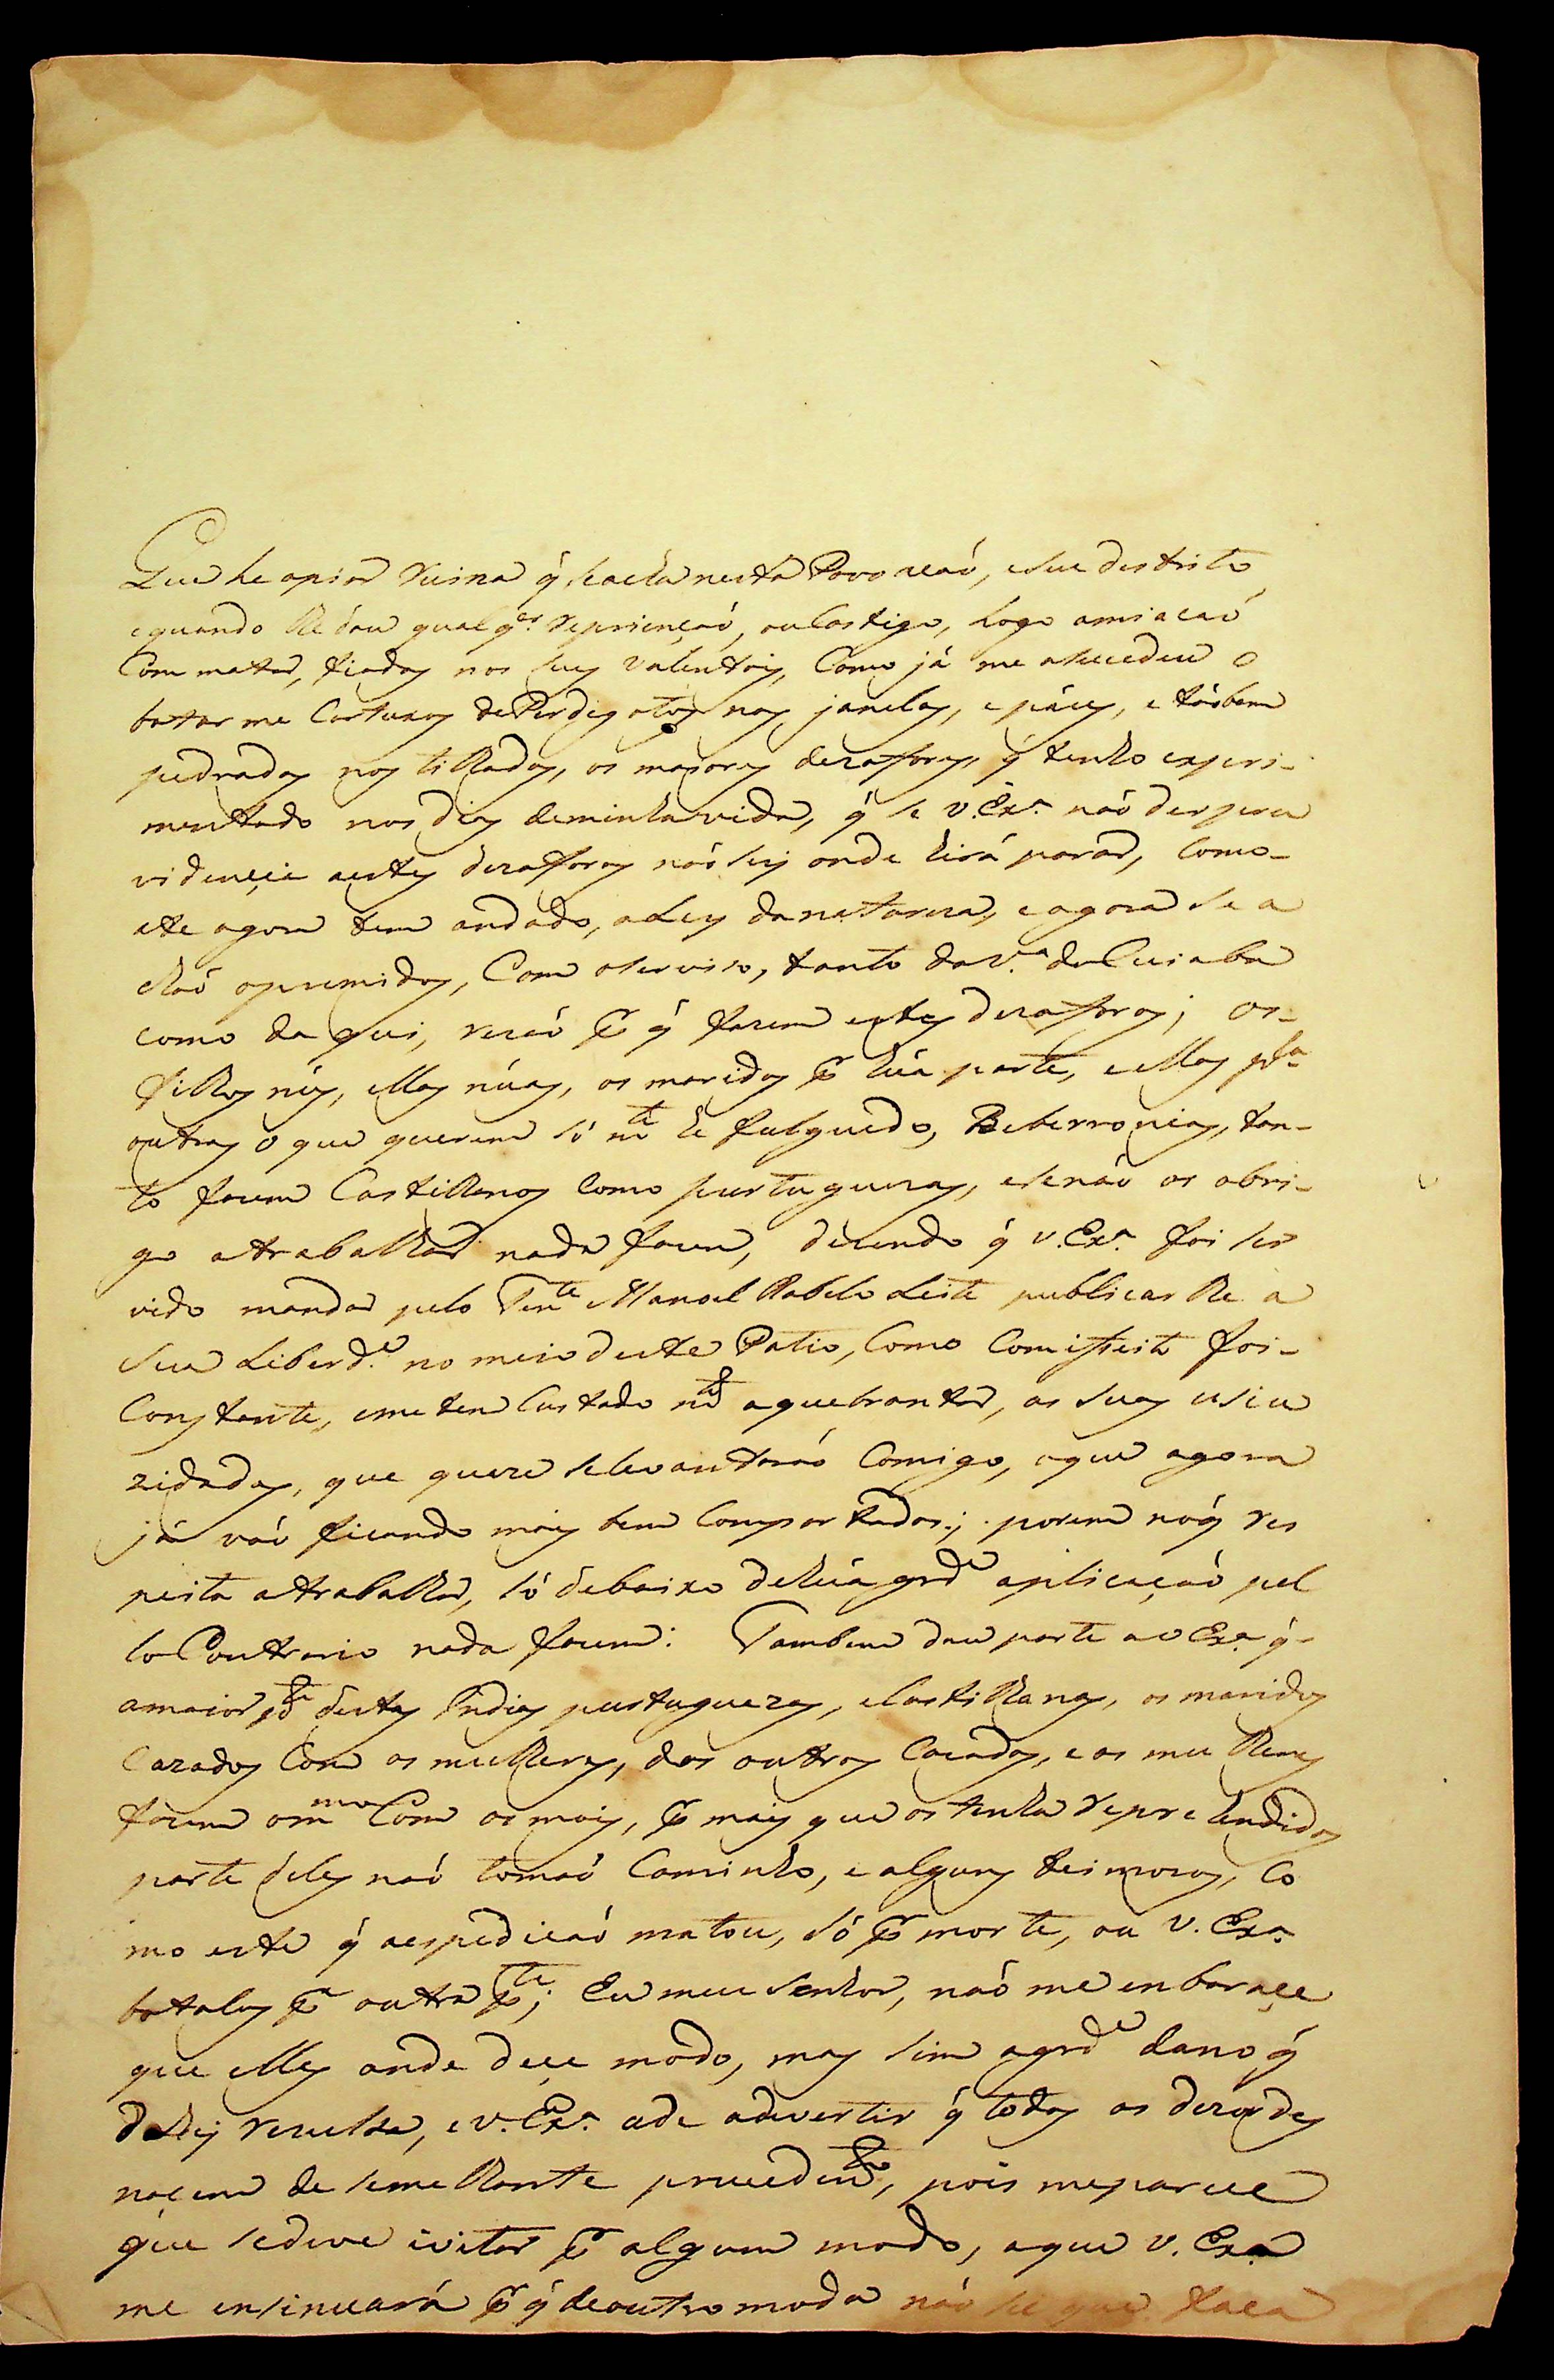 Que he apior Ruina q̃ seacha nesta Povoacaó, eseu destrito
equando lhe dou qualqer. Repriençaó, ou Castigo, logo amiacaó
Com matar, fiados nos seus valentois, Como já me asucedeu o
botar me Cartuxos de Perdigotos nas janelas, e páres, e taóbem
pedradas nos tilhados, os majores dezaforos, q̃ tenho experi-
mentado nos dias deminha vida, q̃ se V. Exa. naó der pro
videncia aestes dezaforos naó sei onde hirá parar, Como-
ate agora tem andado, aLey danatureza, e agora se a
chaó oprimidos, Com oservisso, tanto daVa. do Cuiaba
como da qui, rezaó pr q̃ fazem estes dezaforos; os-
filhos nús, ellas núas, os maridos pr húa parte, e ellas pla
outra, o que querem só mte he fulguedo, Beberronias, tan-
to fazem Castilhanos como purtuguezas, esenaó os obri-
go atrabalhar nada fazem, dizendo q̃ V. Exa. foi ser
vido mandar pelo Tente Manoel Rabelo Leite publicar lhe a
sua Liberde. no meio deste Patio, Como Comifeito foi-
Constante, eme tem Custado mto aquebrantar, as suas
que quaze selevantaráo Comigo, oque agora
já vaó ficando mais bem Comportados; porem noq̃ res
peita atrabalhar, só debaixo dehúa grde aplicaçaó pel
lo Contrario nada fazem: Tambem dou parte aV Exa. q̃-
amaior pte destas Indias purtuguezas, eCastilhanas, os maridos
Cazados Com as mulheres, dos outros Cazados, e as mulheres
fazem ommo Com os mais, pr mais que os tenha reprehendidos
parte deles naó tomaó Caminho, e alguns teimozos, Co
mo este q̃ aespediçaó matou, só pr morte, ou V. Exa.
botalos pr outra pte; Eu meu Senhor, naó me enbaraça
que elles ande dece modo, mas sim agrde dano q̃
dahij rezulta, e V. Exa. ade advertir q̃ todas as dezordes
naçem de semelhante procedimto, pois meparece
que sedeve ivitar pr algum modo, aque V. Exa
me insinuará pr q̃ deoutro modo naó sei que faca